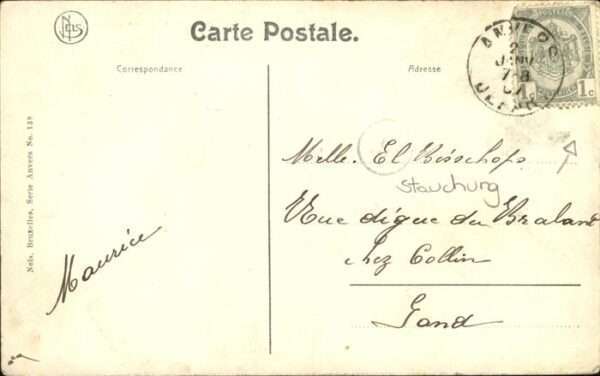 NELS
Carte Postale.
Correspondance
Adresse
ANVERS
2
JANV
7-8
07
1c 1c
Melle. El Bisschops
Stauchung
Rue digue du Brabant
Chez Collin
Gand
Maurice
Nels, Bruxelles, Serie Anvers No. 139